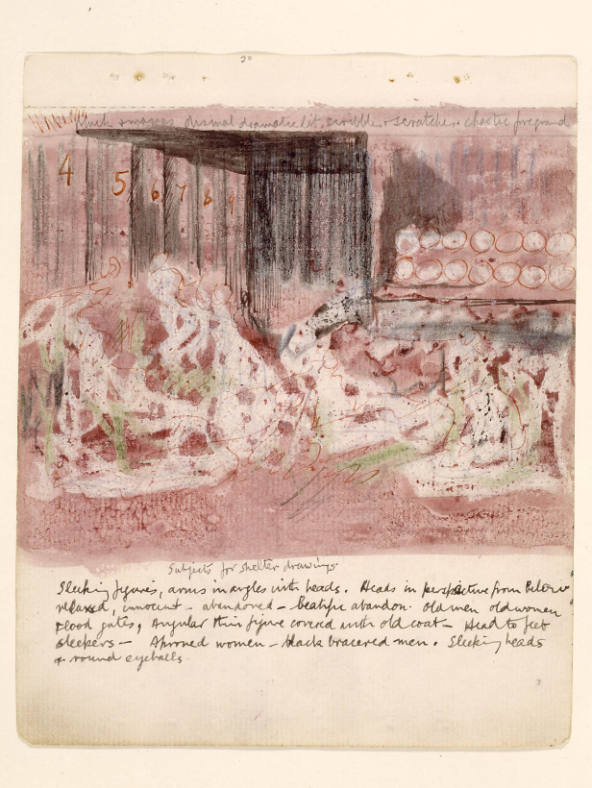 20
dismal dramatic lit, scribble & scratches chaotic foreground
4 5 6 7 8 9
Subjects for shelter drawings
Sleeping figures, arms in angles with heads. Heads in perspective from Below
relaxed, innocent – abandoned – Beatific abandon. Old men old women
Flood gates, Angular thin figure covered with old coat – Head to feet
sleepers – Aproned women – black bracered men. Sleeping heads
& round eyeballs.